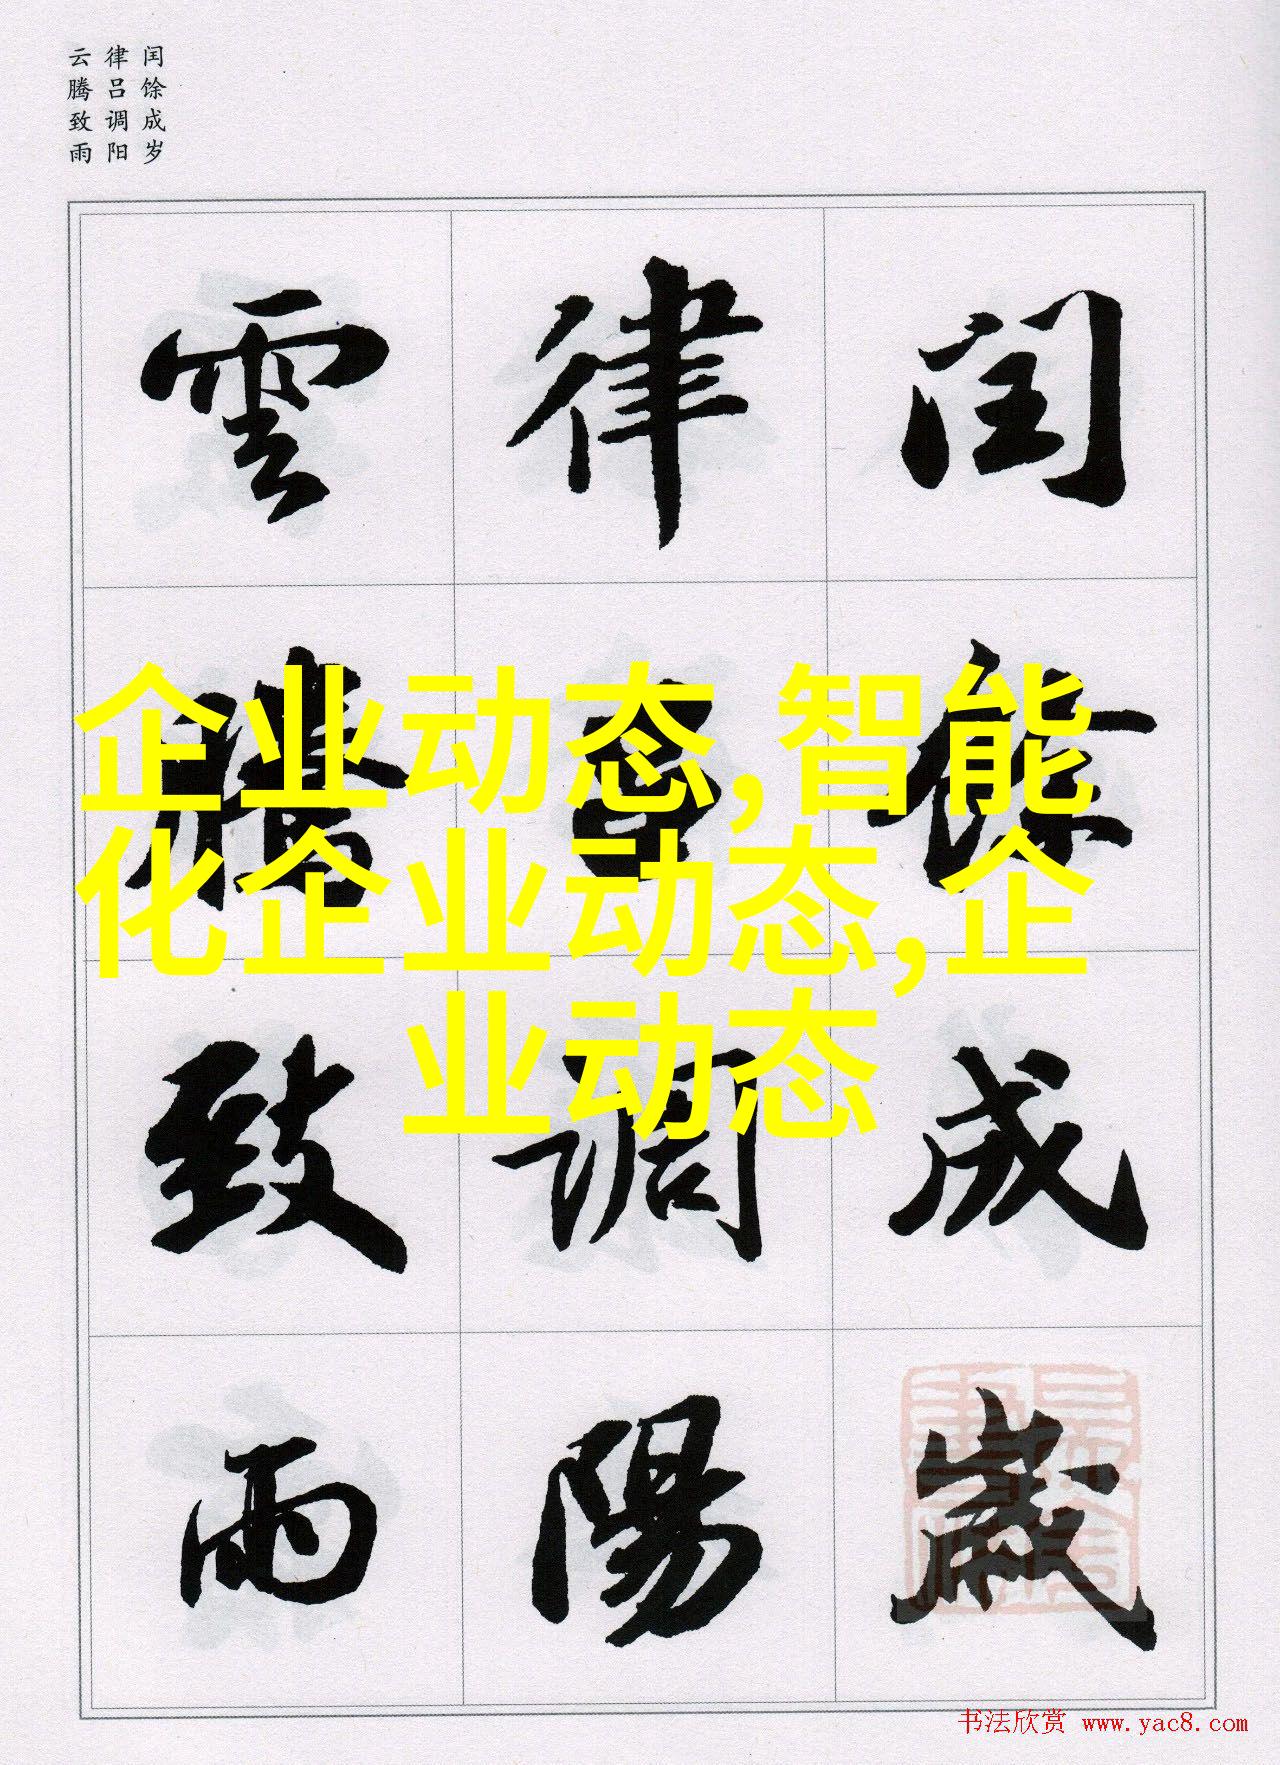 闰馀成岁
律吕调阳
云腾致雨
閏
餘
成
歲
律
吕
調
陽
雲
騰
致
雨
企业动态,智能
化企业动态,企
业动态
书法欣赏 www.yac8.com